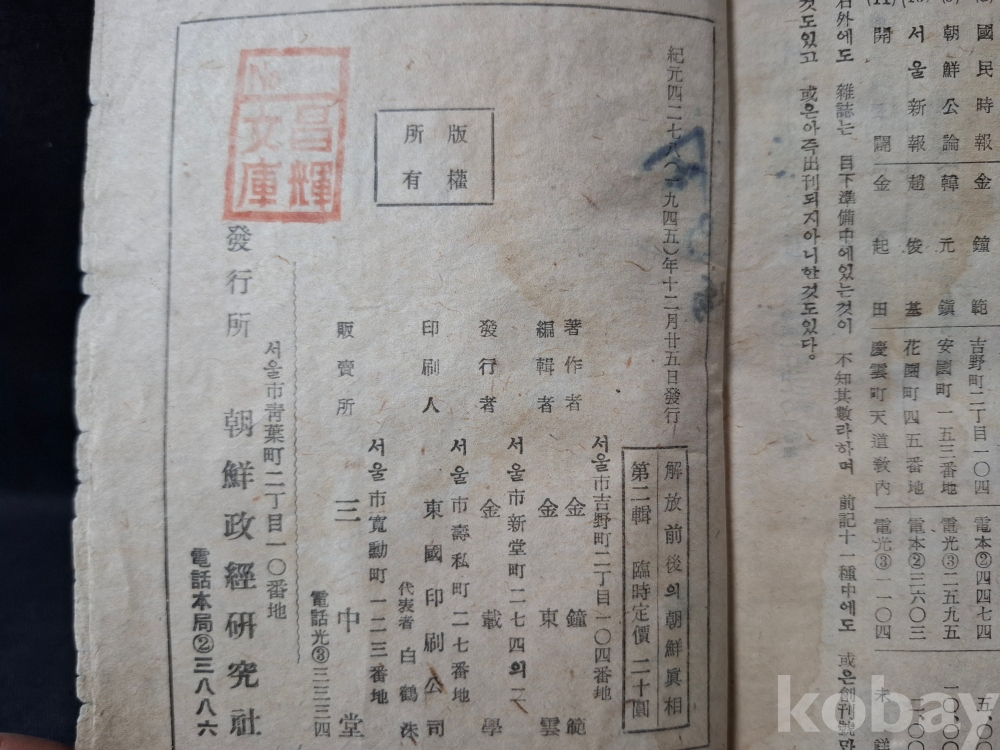 國民時報 金鐘範 吉野町二丁目一〇四 電本②四四七四
朝鮮公論 韓元鎭 安國町一五三番地 電光③二五九五
서울新報 趙俊基 花園町四五番地 電本②三六〇三
(11) 開闢 金起田 慶雲町天道敎內 電光③一一〇四 未詳
右外에도 雜誌는 目下準備中에있는것이 不知其數라하며 前記十一種中에도 或은創刊號만
것도있고 或은아즉出刊되지아니한것도있다。
紀元四二七八(一九四五)年十二月廿五日發行
解放前後의朝鮮眞相
第二輯 臨時定價 二十圓
版權
所有
서울市吉野町二丁目一〇四番地
著作者 金鐘範
編輯者 金東雲
서울市新堂町二七四의二
發行者 金載學
서울市壽私町二七番地
印刷人 東國印刷公司
代表者 白鶴洙
서울市寬勳町一二三番地
販賣所 三中堂
電話光③三三三四
서울市靑葉町二丁目一〇番地
發行所 朝鮮政經硏究社
電話本局②三八八六
No
昌輝
文庫
kobay